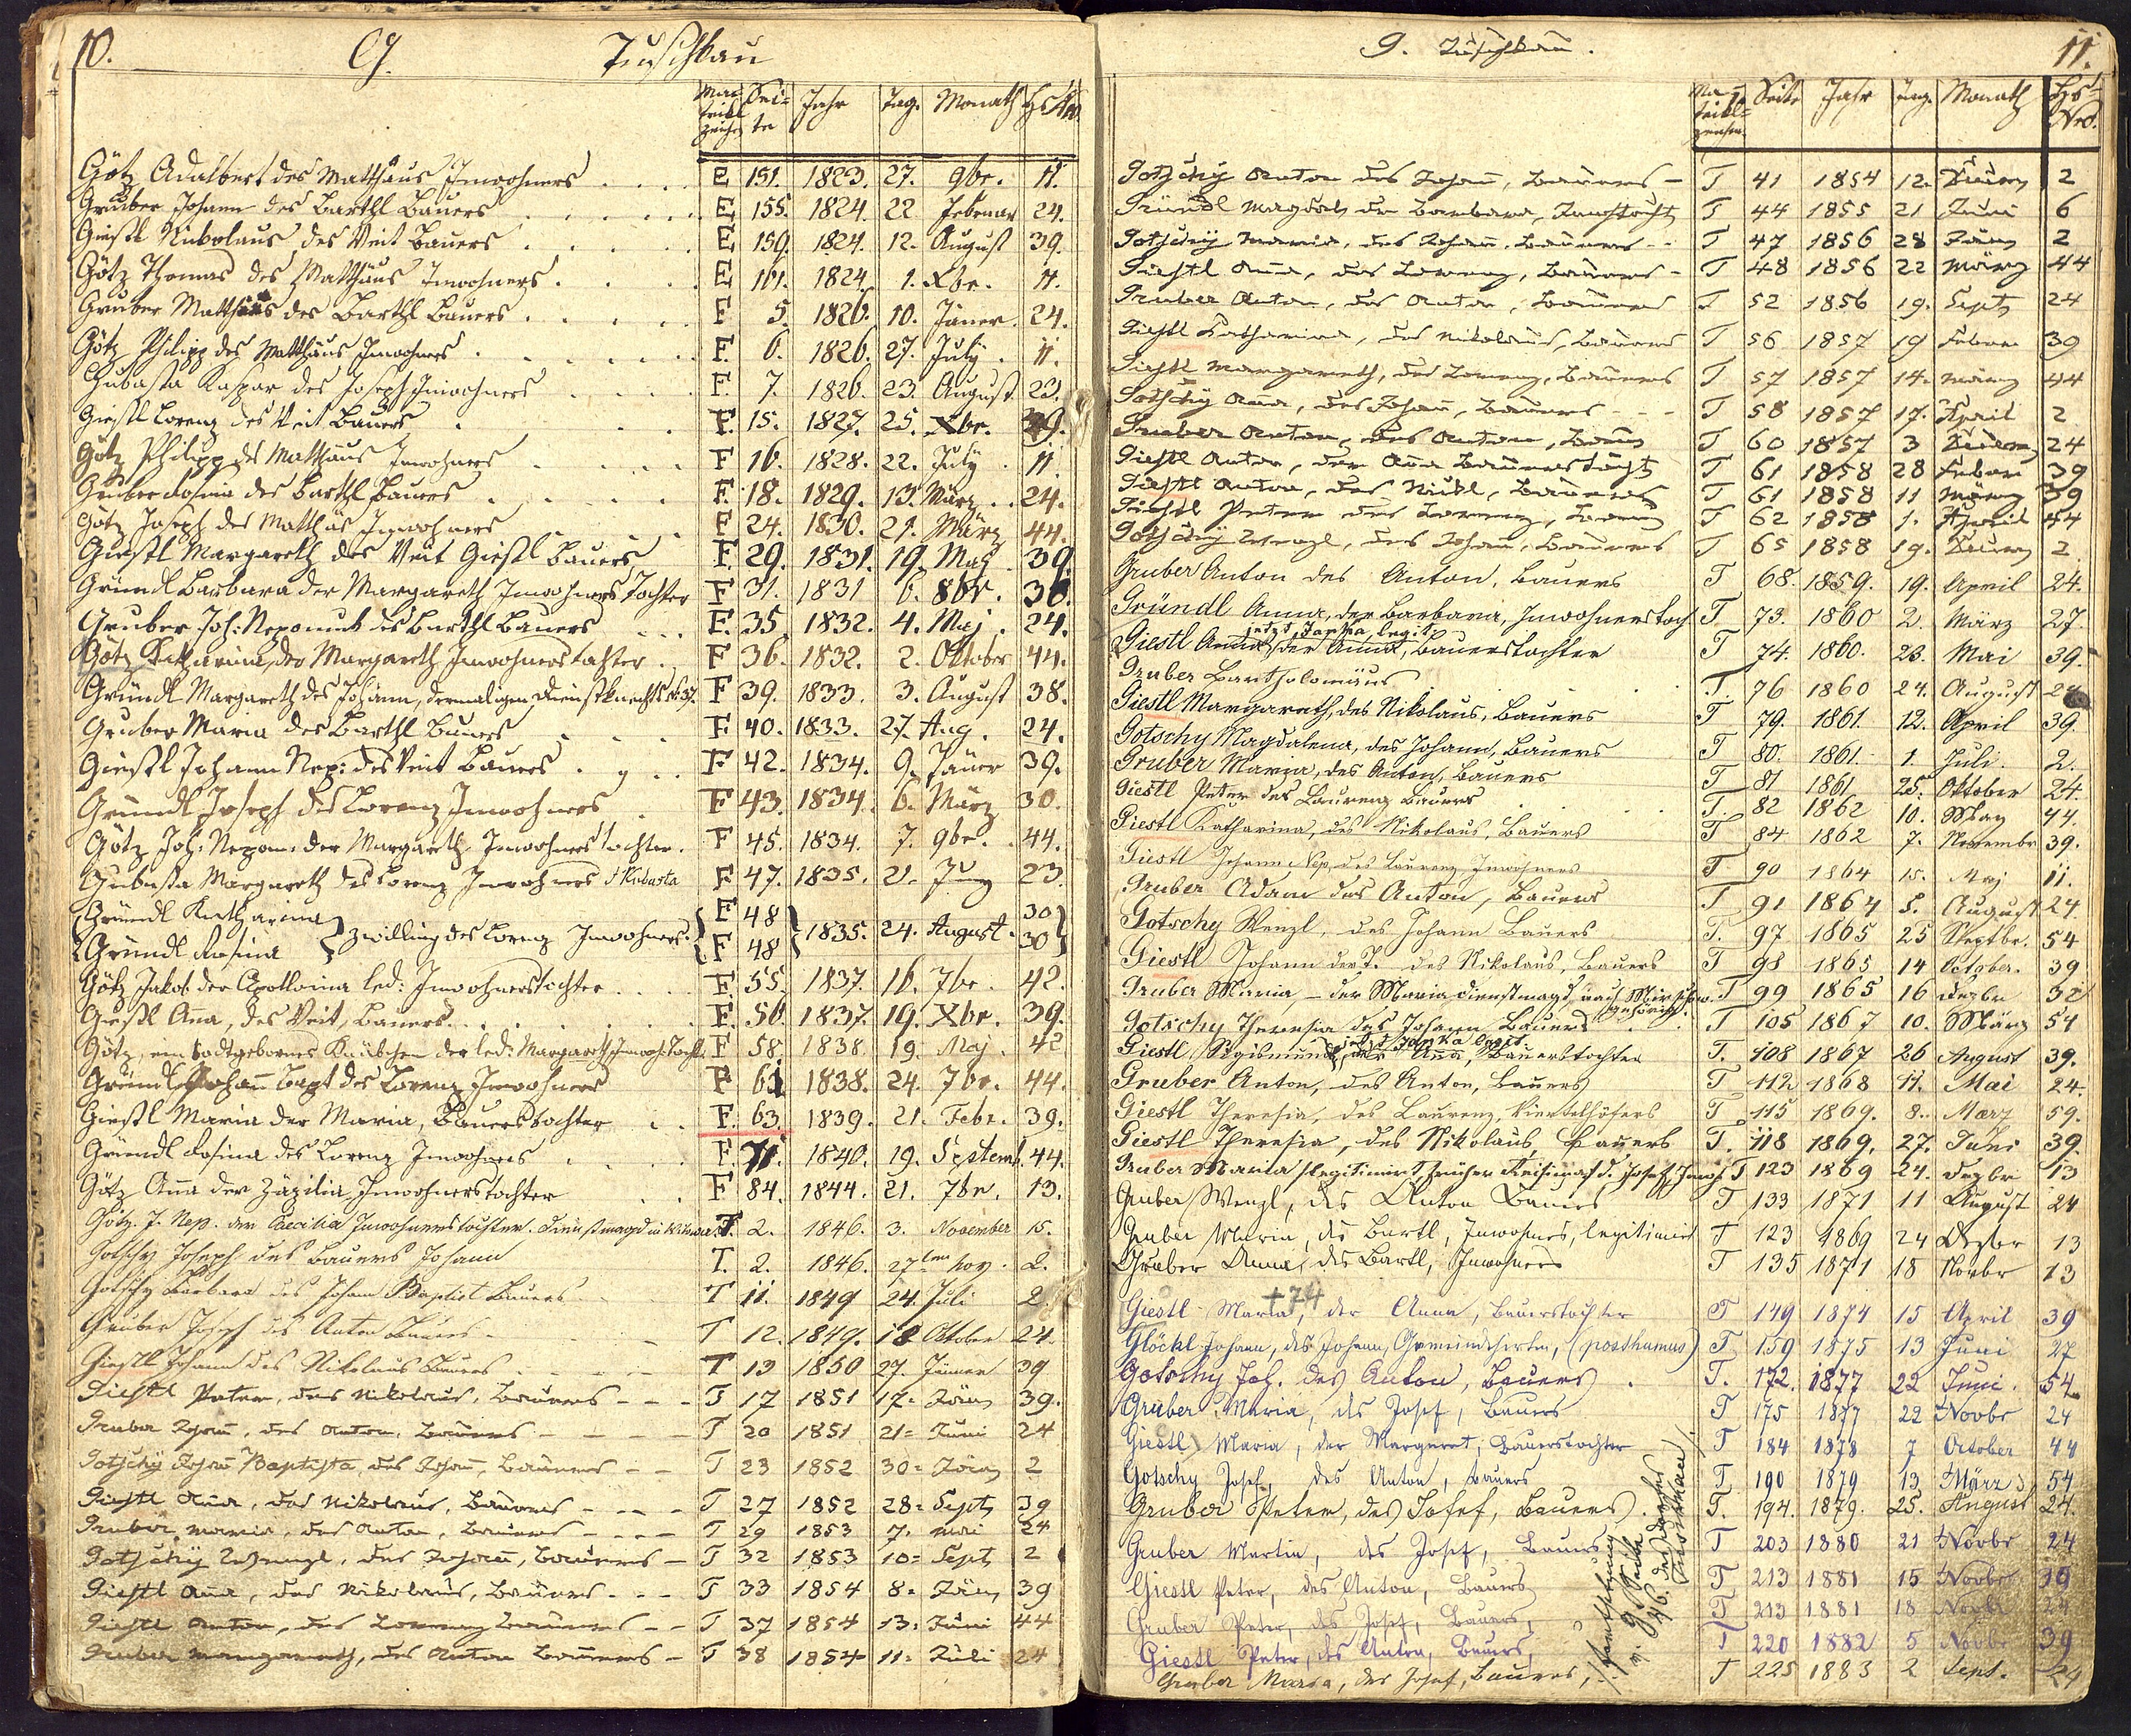 10. G. Tuschkau
Matrikl zeichen Sei= te Jahr Tag. Monath Hs Nro
Götz Adalbert des Matthäus Inwohners . . . E 151. 1823. 27. 9br. 11.
Gruber Johann des Barthl Bauers . . . . E 155. 1824. 22 Februar 24.
Giestl Nikolaus des Veit Bauers . . . . E 159. 1824. 12. August 39.
Götz Thomas des Matthäus Inwohners . . . E 161. 1824. 1. Xbr. 11.
Gruber Matthäus des Barthl Bauers . . . . F 5. 1826. 10. Jäner. 24.
Götz Philipp des Matthäus Inwohners . . . . F. 6. 1826. 27. July. 11.
Gubasta Kaspar des Joseph Inwohners . . . F. 7. 1826. 23. August. 23.
Giestl Lorenz des Veit Bauers . . . F. 15. 1827. 25. Xbr. 39.
Götz Philipp des Matthäus Inwohners . . . F 16. 1828. 22. July. 11
Gruber Rosina des Barthl Bauers . . . . F. 18. 1829. 13. März . 24.
Götz Joseph des Matthäs Inwohners . . . F 24. 1830. 21. März 44.
Giestl Margareth des Veit Giestl Bauers F. 29. 1831. 19. May . 39.
Gründl Barbara der Margareth Inwohners Tochter F 31. 1831 6. 8br. 36.
Gruber Joh: Nepomuk des Barthl Bauers . . . F. 35. 1832. 4. Maj. 24.
Götz Katharina, der Margareth Inwohnerstochter . F 36. 1832. 2. Oktober 44.
Gründl Margareth des Johann, dermaligen Dienstknechts N: 37. F 39. 1833. 3. August 38.
Gruber Maria des Barthl Bauers . . . F 40. 1833. 27. Aug. 24.
Giestl Johann Nep: des Veit Bauers . . . F 42. 1834. 9. Jäner 39.
Gründl Joseph des Lorenz Inwohners . F 43. 1834. 6. März 30.
Götz Joh: Nepom. der Margareth Inwohners tochter. F 45. 1834. 7. 9br. . 44.
Gubasta Margareth des Lorenz Inwohners / Kubasta F. 47. 1835. 21. Juny 23.
Gründl Katharina F 48 30
Gründl Rosina } Zwilling des Lorenz Inwohners. F 48 } 1835. 24. August. 30
Götz Jakob der Apollonia led: Inwohnerstochter . . . F. 55. 1837. 16. 7br. 42.
Giestl Ana, des Veit, Bauers . . . . F. 56. 1837. 19. Xbr. 39.
Götz, ein todtgebornes Knäbchen der led: Margareth Inwoh: Tocht. F 58. 1838. 19. Maj. 42
Gründl Johann Bapt des Lorenz Inwohners F 61 1838. 24. 7br. 44.
Giestl Maria der Maria, Bauerstochter . . F. 63. 1839. 21. Febr. 39.
Gründl Rosina des Lorenz Inwohners . . . F. 71. 1840. 19. Septemb. 44.
Götz Ana der Zäzilia, Inwohnerstochter . . F 84. 1844. 21. 7br. 13.
Götz J. Nep. der Caecilia Inwohnerstochter. Dienstmagd in T. 2. 1846. 3. November 15.
Gotschy Joseph des Bauers Johann T. 2. 1846. 27ten nov. 2.
Gotschy Barbara des Johann Baptist Bauers T 11. 1849 24. Juli 2
Gruber Joseph des Anton Bauers - T 12. 1849. 18 Oktober 24.
Giestl Johann des Nikolaus Bauers - - - T 13 1850 27. Jänner 39
Giestl Peter, des Nikolaus, Bauers - - - T 17 1851 17. Jän 39.
Gruber Johann, des Anton, Bauers - - - - T 20 1851 21= Juni 24
Gotschÿ Johann Baptista, des Johann, Bauers - - T 23 1852 30= Jän 2
Giestl Ana, des Nikolaus, Bauers - - - T 27 1852 28= Sept 39
Gruber Maria, des Anton, Bauers - - - T 29 1853 7. Mai 24
Gotschÿ Wenzl, des Johann, Bauers - T 32 1853 10= Sept 2
Giestl Ana, des Nikolaus, Bauers - - - T 33 1854 8. Jän 39
Giestl Anton, des Lorenz Bauers - - T 37 1854 13. Juni 44
Gruber Margareth, des Anton Bauers - T 38 1854 11= Juli 24
G. Tuschkau. 11.
Ma= trikl= zeichen Seite Jahr Tag. Monath Hs= Nro.
Gotschÿ Anton des Johann, Bauers - T 41 1854 12. 2
Gründl Magdal der Barbara, T 44 1855 21 Juni 6
Gotschÿ Maria, des Johann, Bauers - - T 47 1856 28 Jän 2
Giestl Ana, des Lorenz, Bauers - T 48 1856 22 März 44
Gruber Anton, des Anton, Bauers T 52 1856 19. Sept 24
Giestl Katharina, des Nikolaus, Bauers T 56 1857 19 Feber 39
Giestl Margareth, des Lorenz, Bauers T 57 1857 14. März 44
Gotschÿ Ana, des Johann, Bauers - - - T 58 1857 17. April 2
Gruber Anton, des Anton, Bauers T 60 1857 3 24
Giestl Anton, der Ana Bauerstocht T 61 1858 28 Feber 39
Giestl Anton, des Nikl, Bauers T 61 1858 11 März 39
Giestl Peter des Lorenz, Bauers T 62 1858 1. April 44
Gotschÿ Wenzl, des Johann, Bauers T 65 1858 19. 2
Gruber Anton des Anton, Bauers T 68. 1859. 19. April 24.
Gründl Anna, der Barbara, Inwohnerstoch T. 73. 1860 2. März 27.
jetzt Janka legit
Giestl Anna der Anna, Bauerstochter T 74. 1860. 23. Mai 39.
Gruber Bartholomäus . . . T. 76 1860 24. August 24
Giestl Margareth, des Nikolaus, Bauers T 79. 1861. 12. April 39.
Gotschy Magdalena, des Johann, Bauers T 80. 1861. 1. Juli. 2.
Gruber Maria, des Anton, Bauers T 81 1861 25. Oktober 24.
Giestl Peter des Laurenz Bauers . . . T. 82 1862 10. May 44.
Giestl Katharina, des Nikolaus, Bauers T 84 1862 7. Novembr 39.
Giestl Johann Nep, des Laurenz Inwohners T 90 1864 15. Maj 11.
Gruber Adam des Anton, Bauers T 91 1864 5. August 24.
Gotschy Wenzl, des Johann Bauers T. 97 1865 25 Septbr. 54
Giestl Johann der T. des Nikolaus, Bauers T 98 1865 14 October. 39
Gruber Maria, - der Maria Dienstmagd, nach gehörig. T 99 1865 16 Dezbr 32
Gotschy Theresia des Johann Bauers . T 105 1867 10. März 54
jetzt Janka legit.
Giestl Sigismund, der Ana, Bauerstochter T. 108 1867 26 August 39.
Gruber Anton, des Anton, Bauers T 112 1868 11. Mai 24.
Giestl Theresia, des Laurenz, Viertelhöfers T 115 1869. 8. Maerz 59.
Giestl Theresia, des Nikolaus, Bauers T. 118 1869. 27. Juni 39.
Gruber Maria / legitimirt früher d. Josef, Inwoh T 123 1869 24. Dezbr 13
Gruber Wenzl, des Anton Bauers T 133 1871 11 August 24
Gruber Maria, des Bartl, Inwohners, legitimirt T 123 1869 24 Dezbr 13
Gruber Anna, des Bartl, Inwohners T 135 1871 18 Novbr 13
† 74
Giestl Maria, der Anna, Bauerstochter T 149 1874 15 April 39
Glöckl Johann, des Johann, Gemeindehirten, (posthumus) T 159 1875 13 Juni 27
Gotschy Joh. des Anton, Bauers . T. 172. 1877 22 Juni. 54
Gruber Maria, des Josef, Bauers T 175 1877 22 Novbr 24
Giestl Maria, der Margaret, Bauerstochter T 184 1878 7 October 44
Gotschy Josef, des Anton, Bauers T 190 1879 13 März 54
Gruber Peter, des Josef, Bauers. T. 194. 1879. 25. August 24.
Gruber Martin, des Josef, Bauers T 203 1880 21 Novbr 24
Giestl Peter, des Anton, Bauers T 213 1881 15 Novbr 39
Gruber Peter, des Josef, Bauers, T 213 1881 18 Novbr 24
Giestl Peter, des Anton, Bauers, T 220 1882 5 Novbr 39
Gruber Maria, des Josef, Bauers, T 225 1883 2 Sept. 24
Fortsetzung
Seite
46. des Dorfes